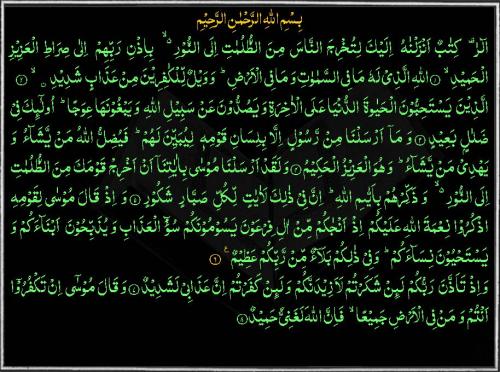 بِسْمِ اللهِ الرَّحْمٰنِ الرَّحِيْمِ
الٓرٰ ۫ كِتٰبٌ اَنْزَلْنٰهُ اِلَيْكَ لِتُخْرِجَ النَّاسَ مِنَ الظُّلُمٰتِ اِلَى النُّوْرِ ۙ بِاِذْنِ رَبِّهِمْ اِلٰى صِرَاطِ الْعَزِيْزِ
الْحَمِيْدِ ۙ﴿۱﴾ اللهِ الَّذِيْ لَهٗ مَا فِي السَّمٰوٰتِ وَمَا فِي الْاَرْضِ ؕ وَوَيْلٌ لِّلْكٰفِرِيْنَ مِنْ عَذَابٍ شَدِيْدِ ۙ﴿۲﴾
الَّذِيْنَ يَسْتَحِبُّوْنَ الْحَيٰوةَ الدُّنْيَا عَلَى الْاٰخِرَةِ وَيَصُدُّوْنَ عَنْ سَبِيْلِ اللهِ وَيَبْغُوْنَهَا عِوَجًا ؕ اُولٰٓئِكَ فِيْ
ضَلٰلٍۭ بَعِيْدٍ ﴿۳﴾ وَمَاۤ اَرْسَلْنَا مِنْ رَّسُوْلٍ اِلَّا بِلِسَانِ قَوْمِهٖ لِيُبَيِّنَ لَهُمْ ؕ فَيُضِلُّ اللهُ مَنْ يَّشَآءُ وَ
يَهْدِيْ مَنْ يَّشَآءُ ؕ وَهُوَ الْعَزِيْزُ الْحَكِيْمُ ﴿۴﴾ وَلَقَدْ اَرْسَلْنَا مُوْسٰى بِاٰيٰتِنَاۤ اَنْ اَخْرِجْ قَوْمَكَ مِنَ الظُّلُمٰتِ
اِلَى النُّوْرِ ۙ وَذَكِّرْهُمْ بِاَيّٰىمِ اللهِ ؕ اِنَّ فِيْ ذٰلِكَ لَاٰيٰتٍ لِّكُلِّ صَبَّارٍ شَكُوْرٍ ﴿۵﴾ وَاِذْ قَالَ مُوْسٰى لِقَوْمِهِ
اذْكُرُوْا نِعْمَةَ اللهِ عَلَيْكُمْ اِذْ اَنْجٰكُمْ مِّنْ اٰلِ فِرْعَوْنَ يَسُوْمُوْنَكُمْ سُوْٓءَ الْعَذَابِ وَيُذَبِّحُوْنَ اَبْنَآءَكُمْ وَ
يَسْتَحْيُوْنَ نِسَآءَكُمْ ؕ وَفِيْ ذٰلِكُمْ بَلَآءٌ مِّنْ رَّبِّكُمْ عَظِيْمٌ ﴿۶﴾
وَاِذْ تَاَذَّنَ رَبُّكُمْ لَئِنْ شَكَرْتُمْ لَاَزِيْدَنَّكُمْ وَلَئِنْ كَفَرْتُمْ اِنَّ عَذَابِيْ لَشَدِيْدٌ ﴿۷﴾ وَقَالَ مُوْسٰۤى اِنْ تَكْفُرُوْۤا
اَنْتُمْ وَمَنْ فِي الْاَرْضِ جَمِيْعًا ۙ فَاِنَّ اللهَ لَغَنِيٌّ حَمِيْدٌ ﴿۸﴾